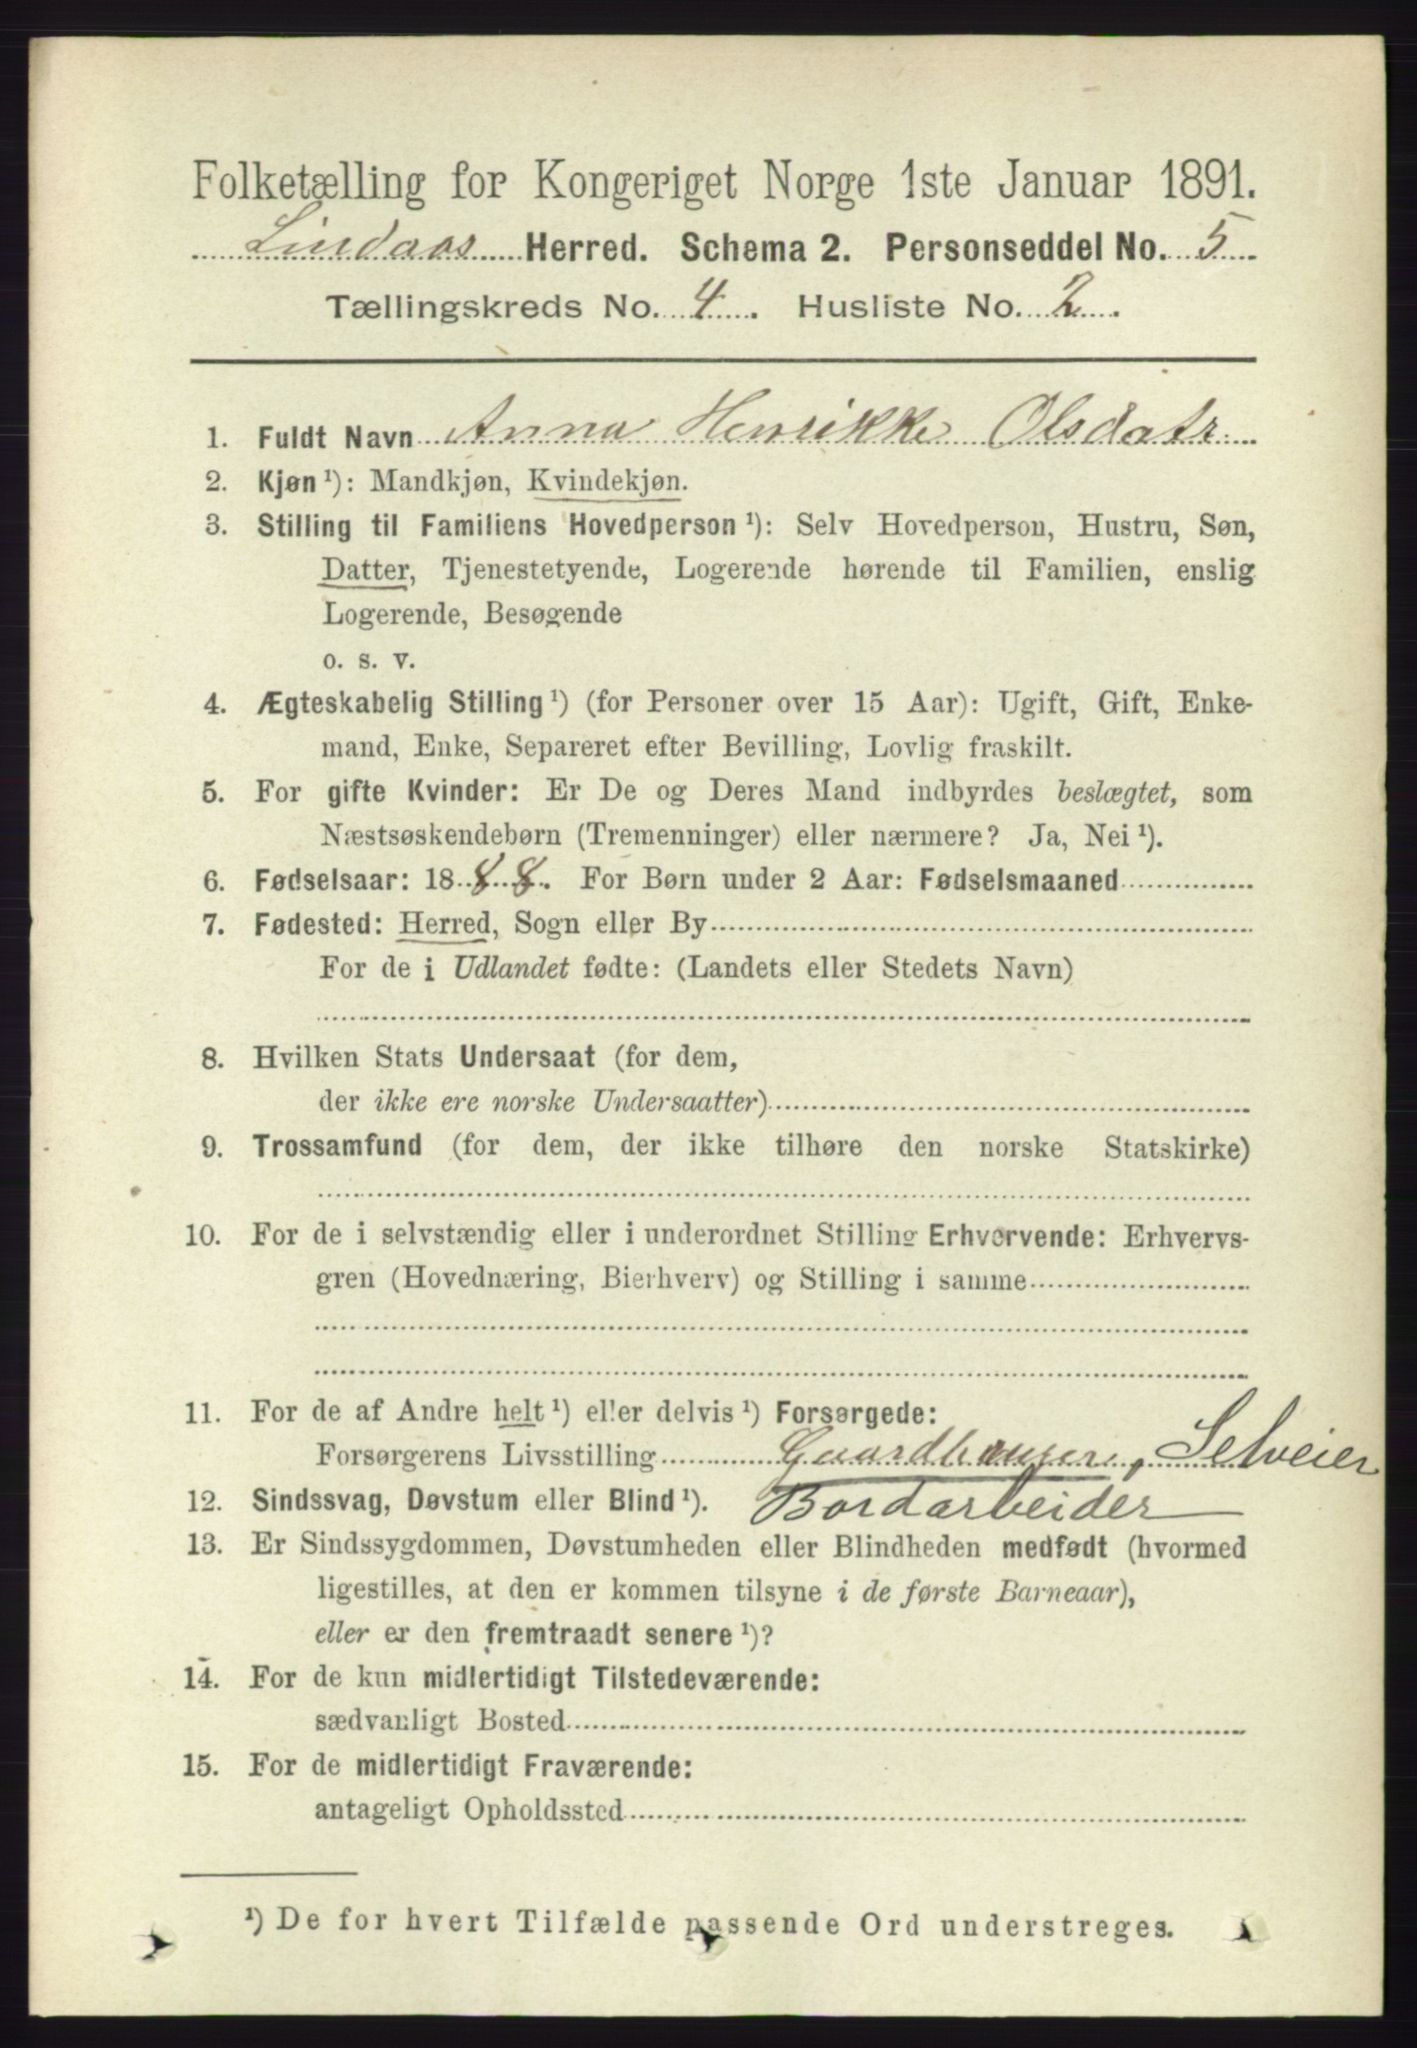 Folketælling for Kongeriget Norge 1ste Januar 1891.
Lindaas Herred. Schema 2. Personseddel No. 5
Tællingskreds No. 4. Husliste No. 2.
1. Fuldt Navn Anna Henrikke Olsdatr.
2. Kjøn ¹): Mandkjøn, Kvindekjøn.
3. Stilling til Familiens Hovedperson ¹): Selv Hovedperson, Hustru, Søn,
Datter, Tjenestetyende, Logerende hørende til Familien, enslig
Logerende, Besøgende
o. s. v.
4. Ægteskabelig Stilling ¹) (for Personer over 15 Aar): Ugift, Gift, Enke-
mand, Enke, Separeret efter Bevilling, Lovlig fraskilt.
5. For gifte Kvinder: Er De og Deres Mand indbyrdes beslægtet, som
Næstsøskendebørn (Tremenninger) eller nærmere? Ja, Nei ¹).
6. Fødselsaar: 1888. For Børn under 2 Aar: Fødselsmaaned
7. Fødested: Herred, Sogn eller By
For de i Udlandet fødte: (Landets eller Stedets Navn)
8. Hvilken Stats Undersaat (for dem,
der ikke ere norske Undersaatter)
9. Trossamfund (for dem, der ikke tilhøre den norske Statskirke)
10. For de i selvstændig eller i underordnet Stilling Erhvervende: Erhvervs-
gren (Hovednæring, Bierhverv) og Stilling i samme
11. For de af Andre helt ¹) eller delvis ¹) Forsørgede:
Forsørgerens Livsstilling Gaardbruger, Selveier
12. Sindssvag, Døvstum eller Blind ¹). Bordarbeider
13. Er Sindssygdommen, Døvstumheden eller Blindheden medfødt (hvormed
ligestilles, at den er kommen tilsyne i de første Barneaar),
eller er den fremtraadt senere ¹)?
14. For de kun midlertidigt Tilstedeværende:
sædvanligt Bosted
15. For de midlertidigt Fraværende:
antageligt Opholdssted
¹) De for hvert Tilfælde passende Ord understreges.